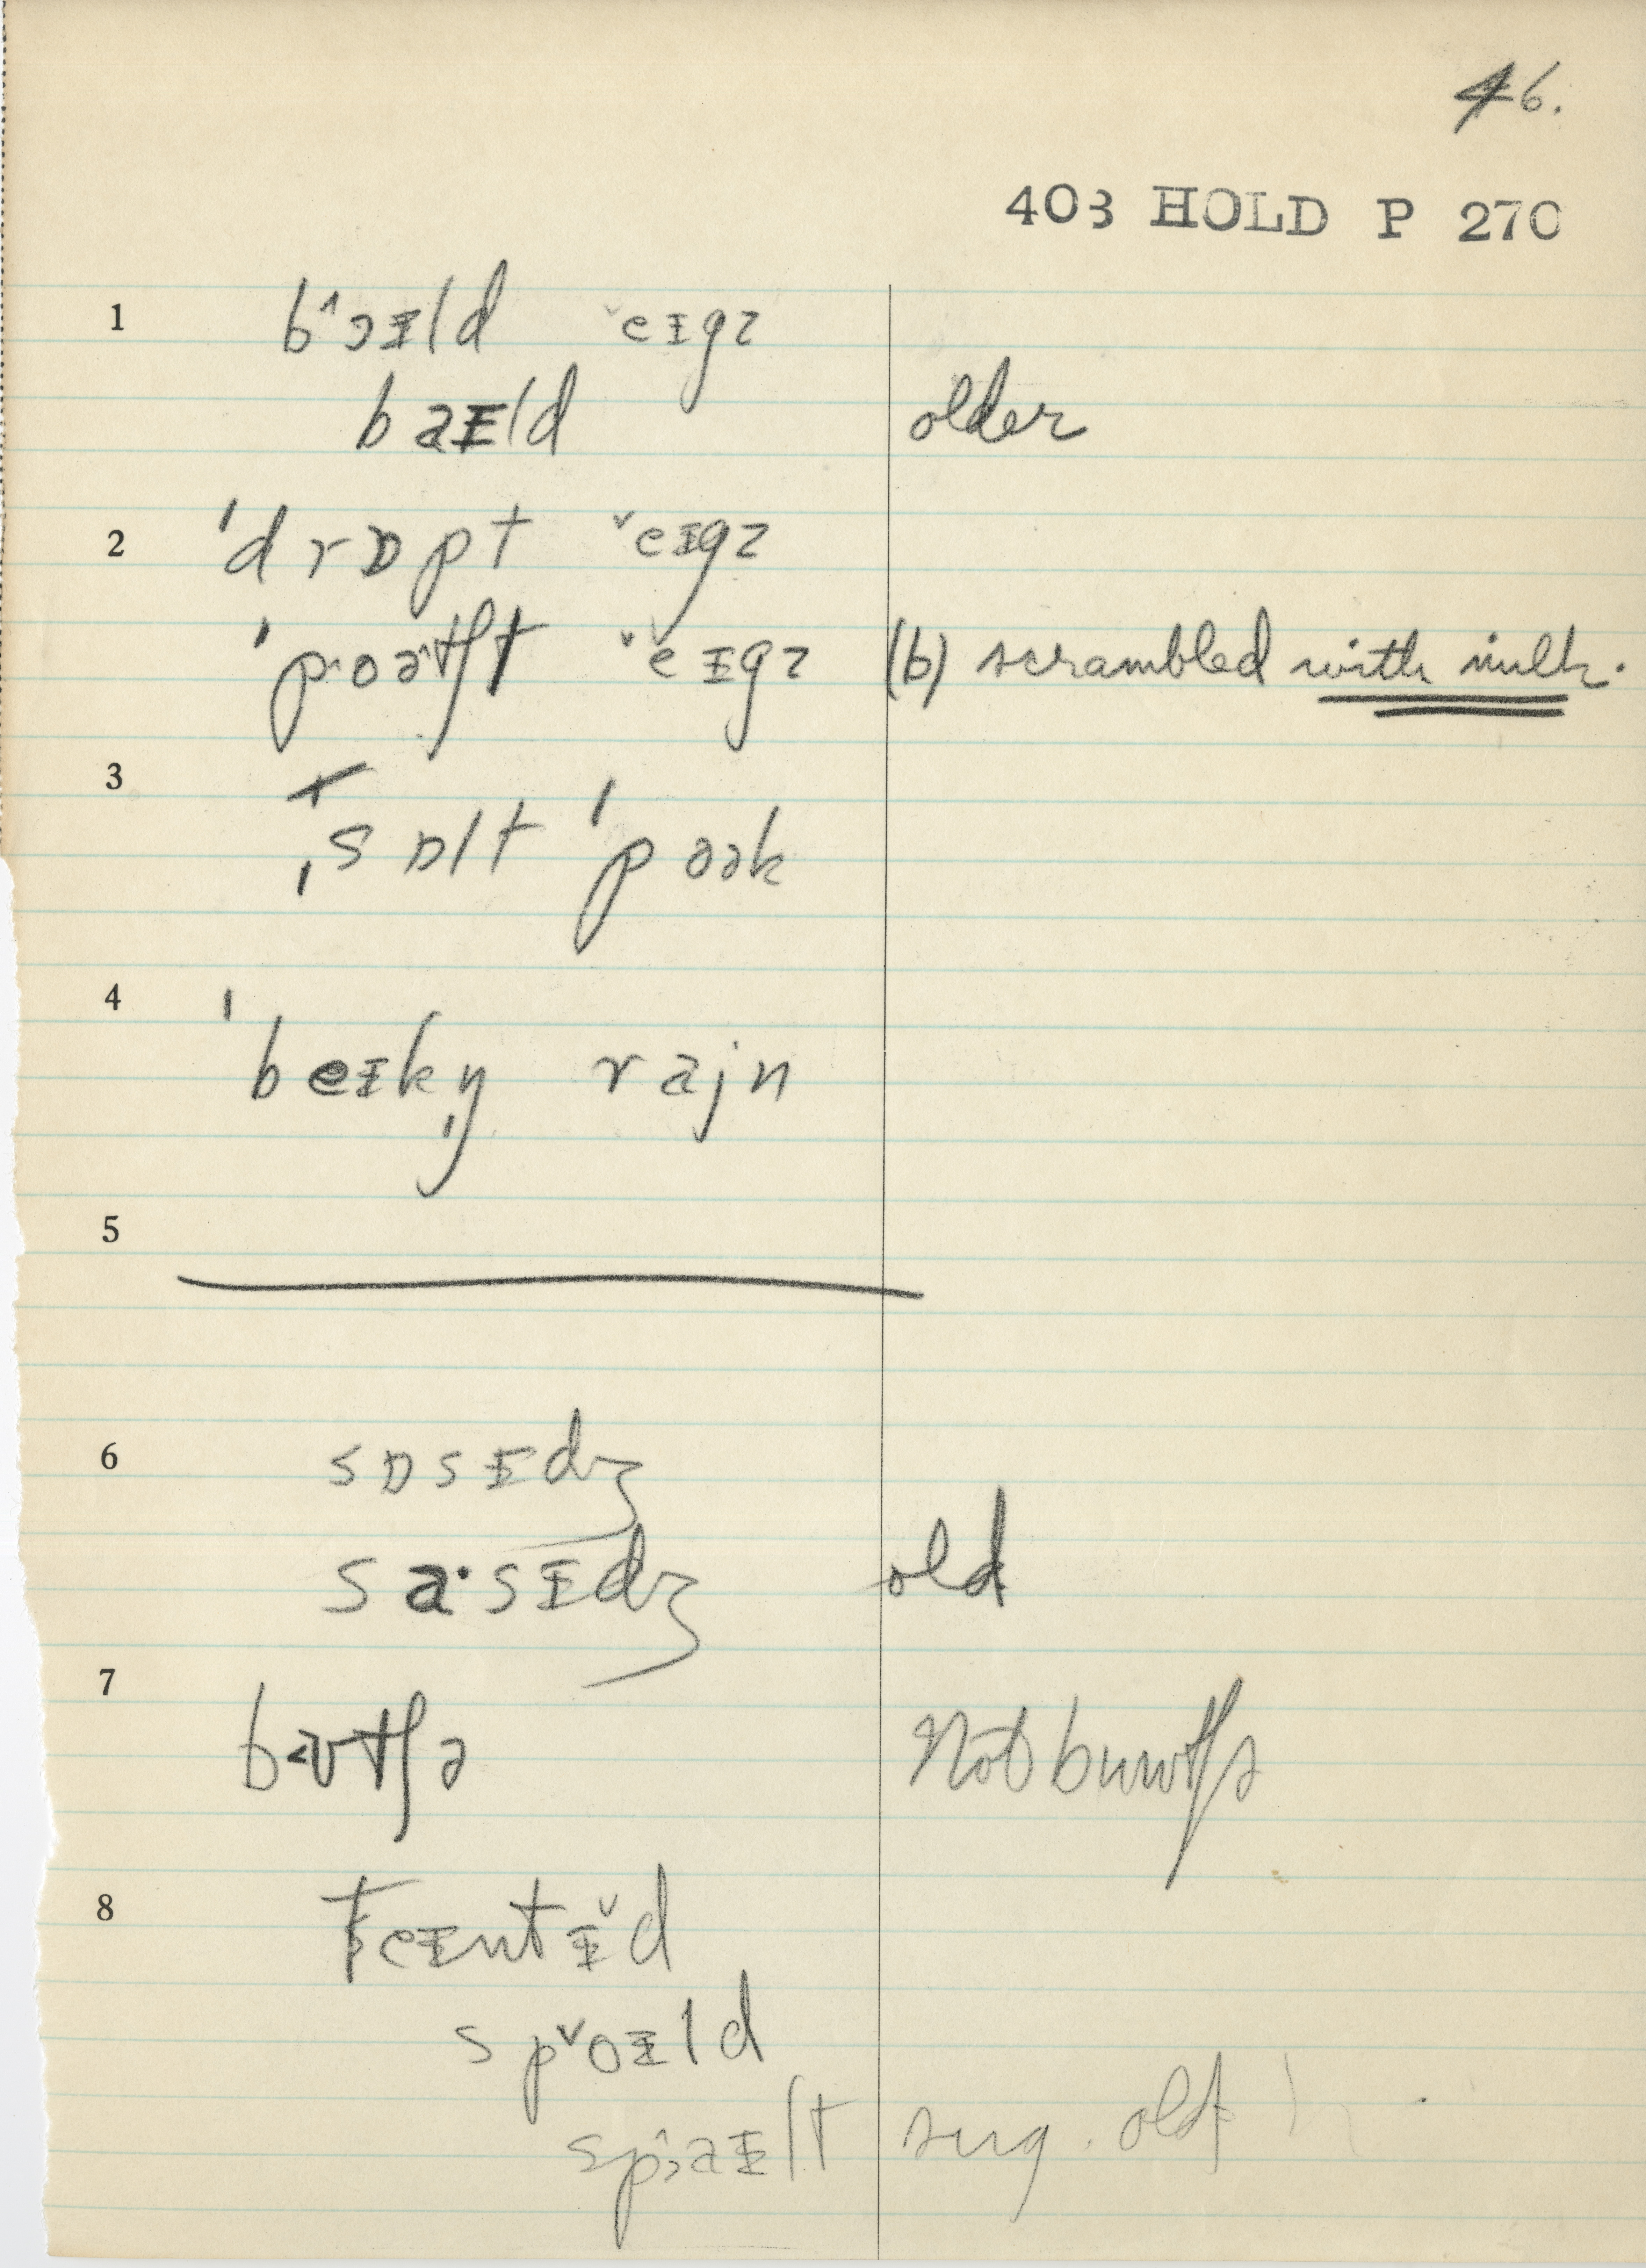 46.
403 HOLD P 270
1 b˄ɔɪld ˇeɪgz
baɪld older
2 ˈdrɒpt ˇeɪgz
ˈpˑoəˑtʃt ˇeˇɪgz (b) scrambled with milk.
3 ˌsɒlt ˈpoək
4 ˈbeɪkŋ̩ rajn
5
6 sɒsɪdʒ
saˑsɪdʒ old
7 bʊtʃə Not buutʃə
8 teɪntɪˇd
spˇoɪld
spˆɜaɪlt sug. old